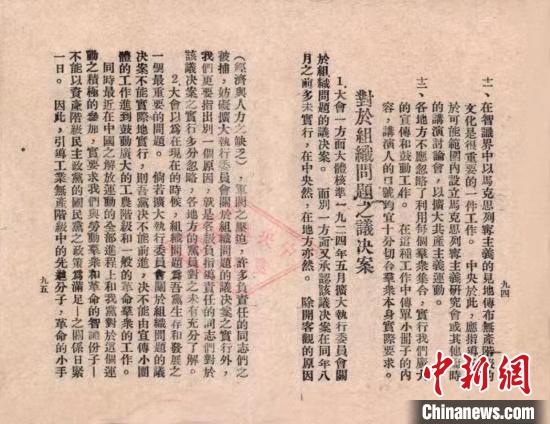 十二、在智識界中以馬克思列寗主義的見地傳布無產階級的
文化是很重要的一件工作。 中央於此，應指導
於可能範圍內設立馬克思列寗主義研究會或其他臨時
的講演討論會，以擴大共產主義運動。
十三、各地方不應忽略了利用每個羣衆集會，實行我們廣大
的宣傳和鼓動工作。 在這種工作中傳單小冊子的內
容，講演人的口號均宜十分切合羣衆本身實際要求。
對於組織問題之議決案
1.大會一方面大體核準一九二四年五月擴大執行委員會關
於組織問題的議決案。 而別一方面又承認該議決案在同年八
月之前多未實行，在中央然，在地方亦然。 除開客觀的原因
九四
(經濟與人力之缺乏)，軍閥之壓迫，許多負責任的同志的之
被捕，妨礙擴大執行委員會關於組織問題的議決案之實行外，
我們更要指出別一個原因，就是各級負指導責任的同志們對於
該議決案之實行多分忽略，各地方的黨員對之未有充分了解。
2.大會以爲在現在的時候，組織問題爲吾黨生存和發展之
一個最重要的問題。 倘若擴大執行委員會關於組織問題的議
決案不能實際地實行，則吾黨決不能前進，決不能由宣傳小團
體的工作進到鼓動廣大的工農階級和一般的革命羣衆的工作。
同時最近在中國之解放運動的全部進程上和我黨對於這個運
動之積極的參加，實要求我們與勞動羣衆和革命的智識份子—
不能以資產階級民主政黨的國民黨之政策爲滿足—之關係日緊
一日。 因此，引導工業無產階級中的先進分子，革命的小手
九五
中新网
Chinanews.com